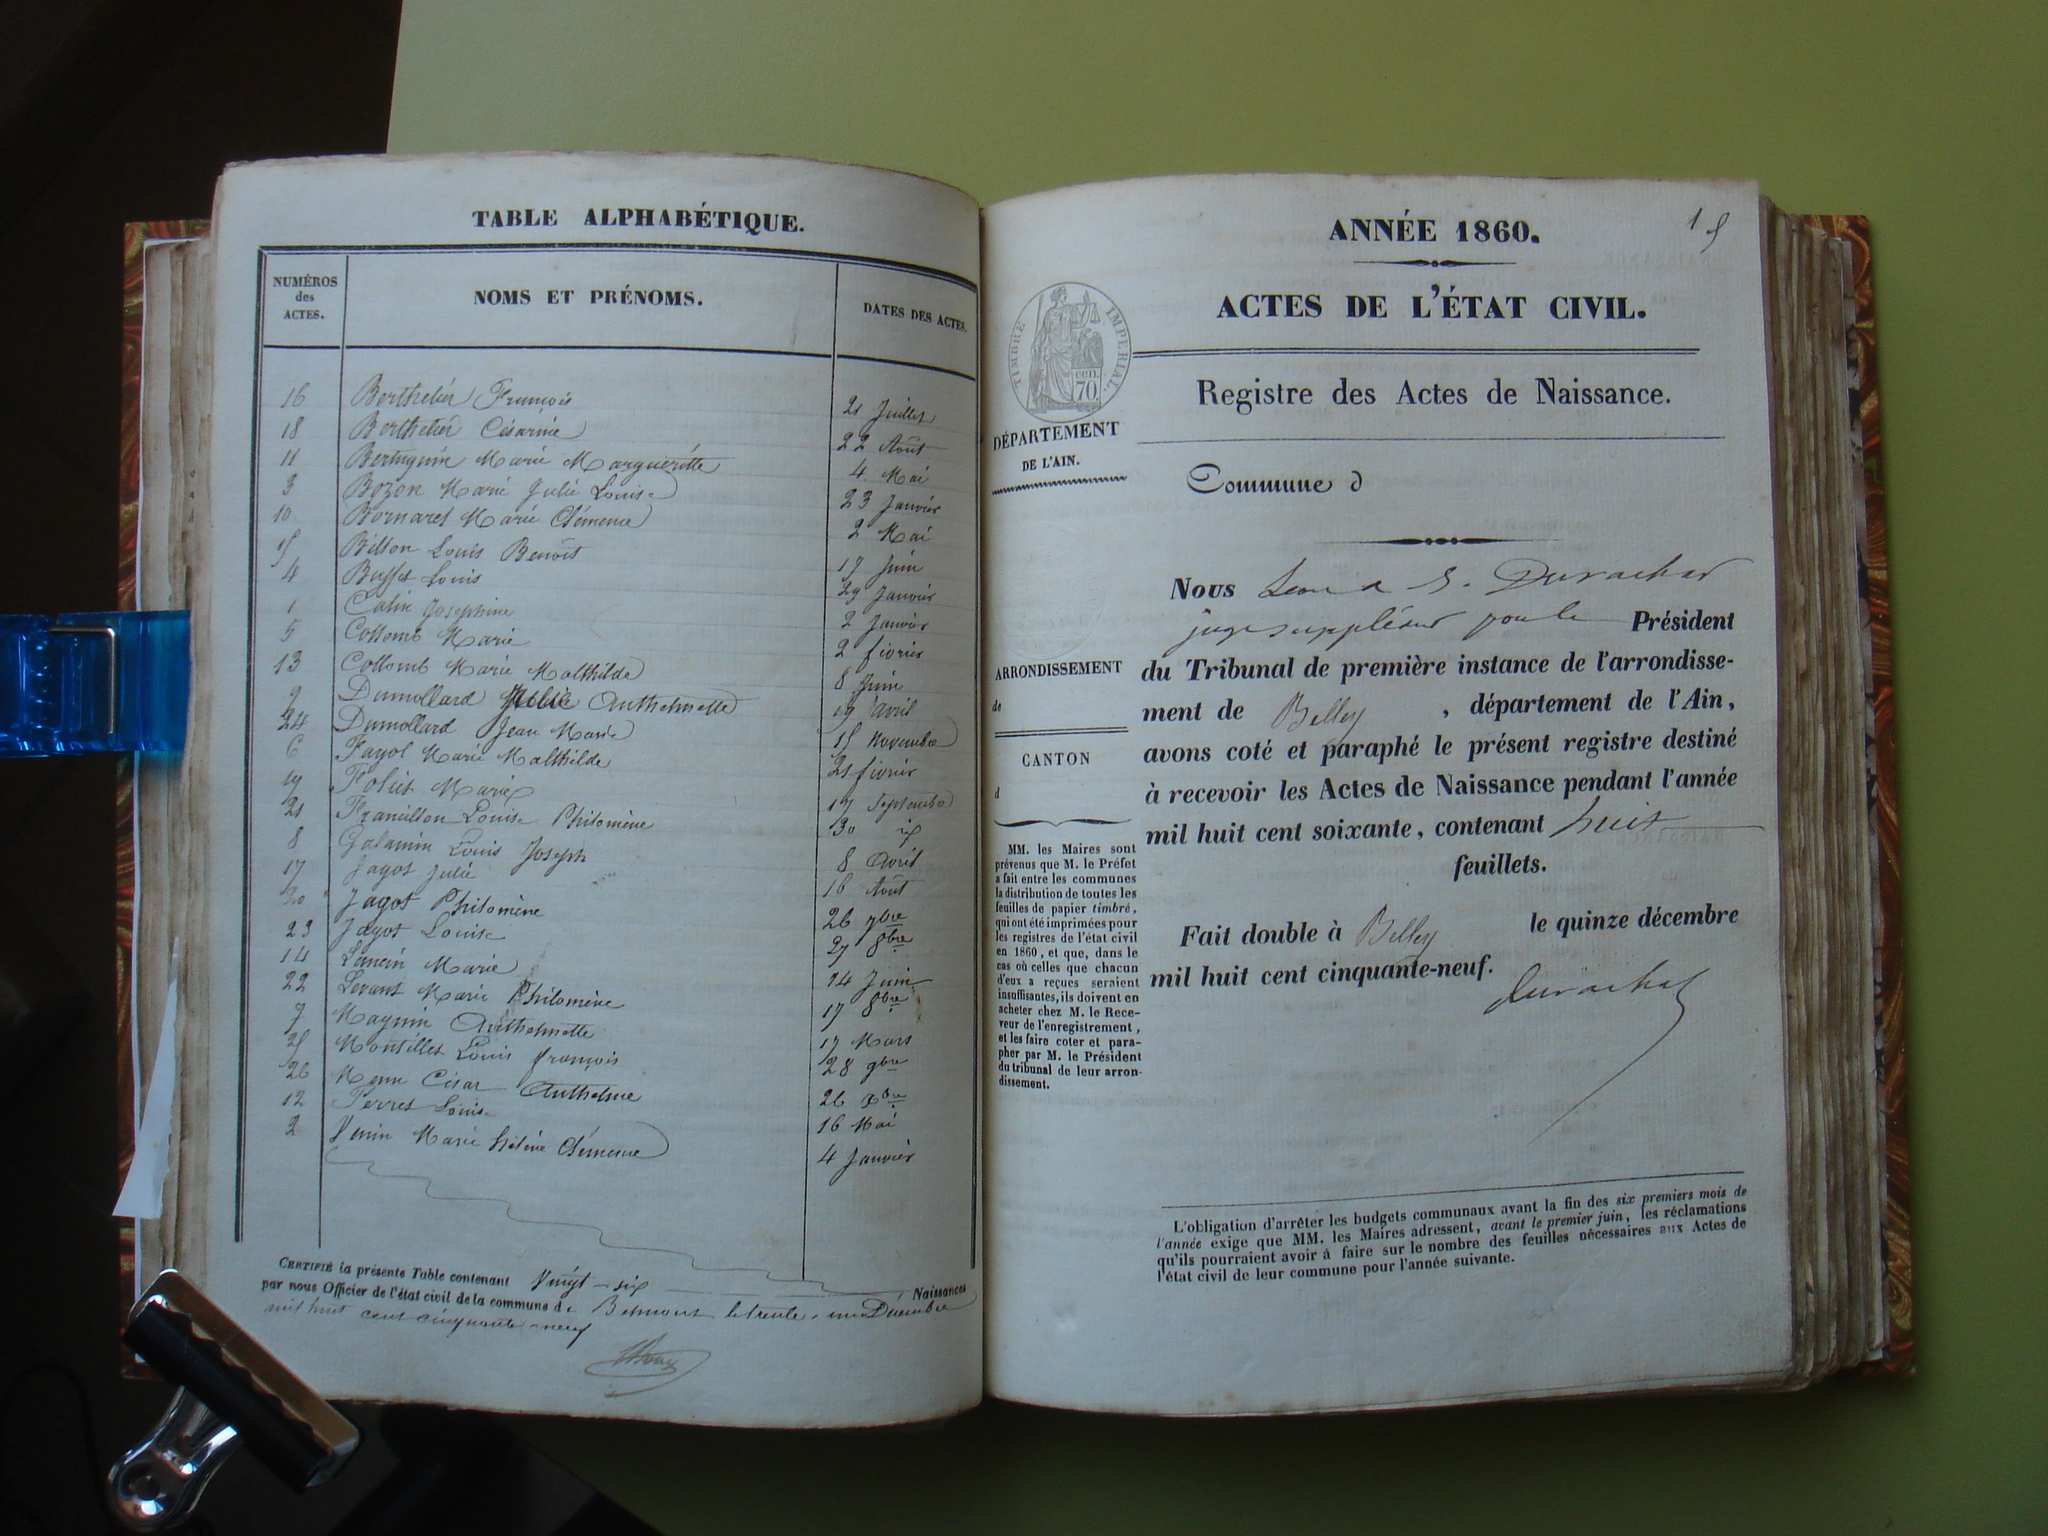 TABLE ALPHABÉTIQUE.
NUMÉROS des ACTES. NOMS ET PRÉNOMS. DATES DES ACTES.
16 Berthelier François 21 Juillet
18 Berthelier Césarine 22 Août
11 Marie Margueritte 4 Mai
3 Bozon Marie Julie Louise 23 Janvier
10 Bornaret Marie Clémence 2 Mai
15 Billon Louis Benoît 17 Juin
4 Buffet Louis 29 Janvier
1 Catin Josephine 2 Janvier
5 Collomb Marie 2 février
13 Collomb Marie Malthilde 8 Juin
9 Dumollard Julie Anthelmette 19 avril
24 Dumollard Jean Marie 15 Novembre
6 Fayol Marie Malthilde 21 février
19 Marie 17 Septembre
21 Francillon Louise Philomène 30
8 Galamin Louis Joseph 8 Avril
17 Jagot Julie 16 Août
20 Jagot Philomène 26 7bre
23 Jagot Louise 27 8bre
14 Marie 14 Juin
22 Levant Marie Philomène 17 8bre
7 Magnin Anthelmette 17 Mars
25 Montillet Louis françois 28 9bre
26 César Anthelme 26 Xbre
12 Perret Louis 16 Mai
2 Marie hélène Clémence 4 Janvier
CERTIFIÉ la présente Table contenant Vingt-six Naissances
par nous Officier de l'état civil de la commune de Belmont le trente-un Décembre
mil huit cent cinquante-neuf
15
ANNÉE 1860.
ACTES DE L'ÉTAT CIVIL.
TIMBRE IMPÉRIAL
CEN. 70.
Registre des Actes de Naissance.
DÉPARTEMENT
DE L'AIN.
Commune d
Nous
juge suppléant pour le Président
du Tribunal de première instance de l'arrondisse-
ment de Belley, département de l'Ain,
avons coté et paraphé le présent registre destiné
à recevoir les Actes de Naissance pendant l'année
mil huit cent soixante, contenant huit
feuillets.
Fait double à Belley le quinze décembre
mil huit cent cinquante-neuf.
ARRONDISSEMENT
de
CANTON
d
MM. les Maires sont
prévenus que M. le Préfet
a fait entre les communes
la distribution de toutes les
feuilles de papier timbré,
qui ont été imprimées pour
les registres de l'état civil
en 1860, et que, dans le
cas où celles que chacun
d'eux a reçues seraient
insuffisantes, ils doivent en
acheter chez M. le Rece-
veur de l'enregistrement,
et les faire coter et para-
pher par M. le Président
du tribunal de leur arron-
dissement.
L'obligation d'arrêter les budgets communaux avant la fin des six premiers mois de
l'année exige que MM. les Maires adressent, avant le premier juin, les réclamations
qu'ils pourraient avoir à faire sur le nombre des feuilles nécessaires aux Actes de
l'état civil de leur commune pour l'année suivante.